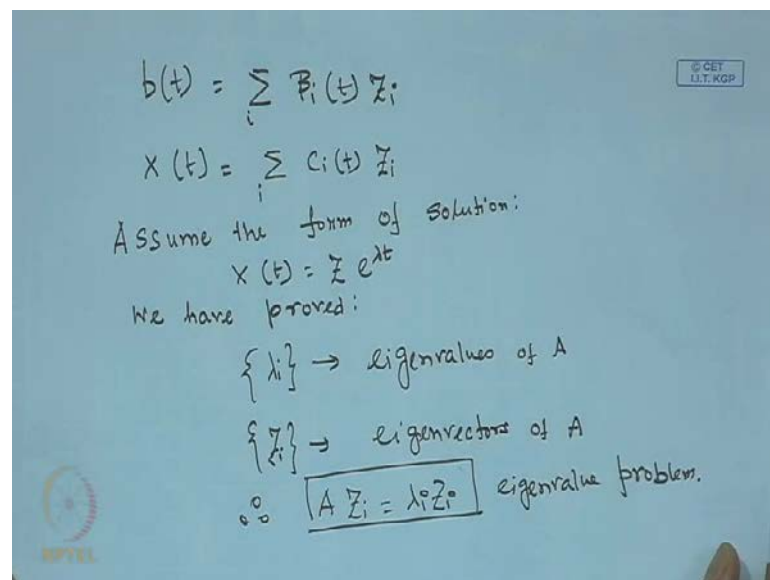 b(t) = Σ_i β_i(t) Z_i
© CET
I.I.T. KGP
X(t) = Σ_i C_i(t) Z_i
Assume the form of solution:
X(t) = Z e^{λt}
We have proved:
{λ_i} → eigenvalues of A
{Z_i} → eigenvectors of A
∴ A Z_i = λ_i Z_i eigenvalue problem.
NPTEL